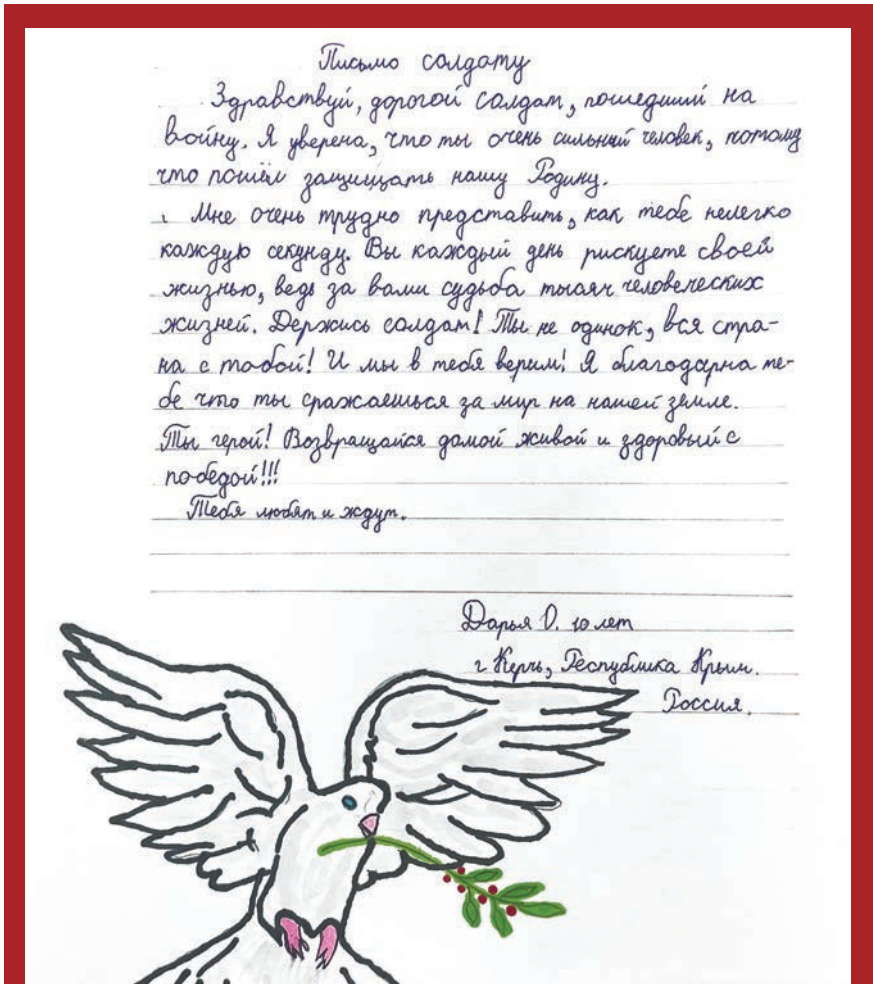 Письмо солдату
Здравствуй, дорогой солдат, пошедший на
войну. Я уверена, что ты очень сильный человек, потому
что пошёл защищать нашу Родину.
Мне очень трудно представить, как тебе нелегко
каждую секунду. Вы каждый день рискуете своей
жизнью, ведь за вами судьба тысяч человеческих
жизней. Держись солдат! Ты не одинок, вся стра-
на с тобой! И мы в тебя верим! Я благодарна те-
бе что ты сражаешься за мир на нашей земле.
Ты герой! Возвращайся домой живой и здоровый с
победой!!!
Тебя любят и ждут.
Дарья О. 10 лет
г Керчь, Республика Крым.
Россия.